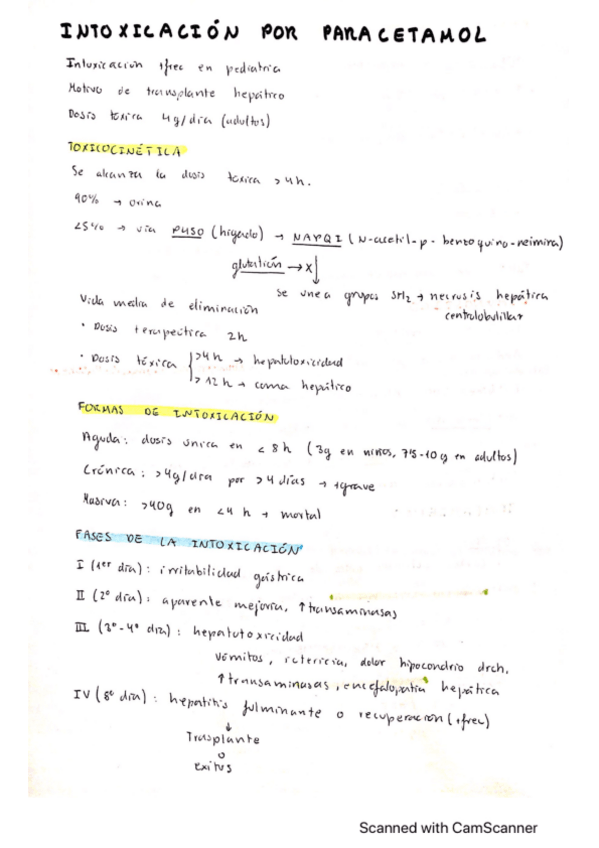 INTOXICACIÓN POR PARACETAMOL
Intoxicación +frec en pediatría
Motivo de transplante hepático
Dosis tóxica 4g/día (adultos)
TOXICOCINÉTICA
Se alcanza la dosis tóxica >4h.
90% → orina
<5% → vía P450 (hígado) → NAPQI (N-acetil-p-benzoquino-neimina)
glutatión → X
se une a grupos SH2 → necrosis hepática
centrolobulillar
Vida media de eliminación
• Dosis terapeútica 2h
• Dosis tóxica >4h → hepatotoxicidad
>12h → coma hepático
FORMAS DE INTOXICACIÓN
Aguda: dosis única en <8h (3g en niños, 7'5-10g en adultos)
Crónica: >4g/día por >4 días → +grave
Masiva: >40g en <4h → mortal
FASES DE LA INTOXICACIÓN
I (1er día): irritabilidad gástrica
II (2º día): aparente mejoría, ↑transaminasas
III (3º-4º día): hepatotoxicidad
vómitos, ictericia, dolor hipocondrio drch,
↑transaminasas, encefalopatía hepática
IV (5º día): hepatitis fulminante o recuperación (+frec)
↓
Trasplante
o
Exitus
Scanned with CamScanner